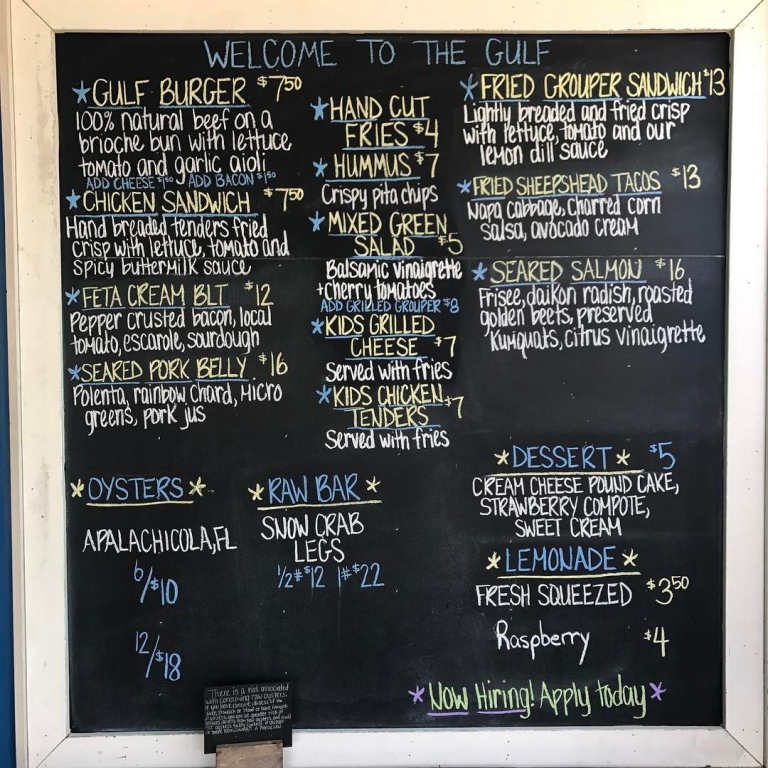 WELCOME TO THE GULF
*GULF BURGER $7.50
100% natural beef on a
brioche bun with lettuce
tomato and garlic aioli
ADD CHEESE $1.50 ADD BACON $1.50
*CHICKEN SANDWICH $7.50
Hand breaded tenders fried
crisp with lettuce, tomato and
spicy buttermilk sauce
*FETA CREAM BLT $12
Pepper crusted bacon, local
tomato, escarole, sourdough
*SEARED PORK BELLY $16
Polenta, rainbow chard, micro
greens, pork jus
*HAND CUT
FRIES $4
*HUMMUS $7
Crispy pita chips
*MIXED GREEN
SALAD $5
Balsamic vinaigrette
+cherry tomatoes
ADD GRILLED GROUPER $8
*KIDS GRILLED
CHEESE $7
Served with fries
*KIDS CHICKEN
TENDERS $7
Served with fries
*FRIED GROUPER SANDWICH $13
Lightly breaded and fried crisp
with lettuce, tomato and our
lemon dill sauce
*FRIED SHEEPSHEAD TACOS $13
Napa cabbage, charred corn
salsa, avocado cream
*SEARED SALMON $16
Frisee, daikon radish, roasted
golden beets, preserved
kumquats, citrus vinaigrette
*OYSTERS*
APALACHICOLA, FL
6/$10
12/$18
*RAW BAR*
SNOW CRAB
LEGS
1/2# $12 1# $22
*DESSERT* $5
CREAM CHEESE POUND CAKE,
STRAWBERRY COMPOTE,
SWEET CREAM
*LEMONADE*
FRESH SQUEEZED $3.50
Raspberry $4
*Now Hiring! Apply today*
There is a risk associated
with consuming raw oysters.